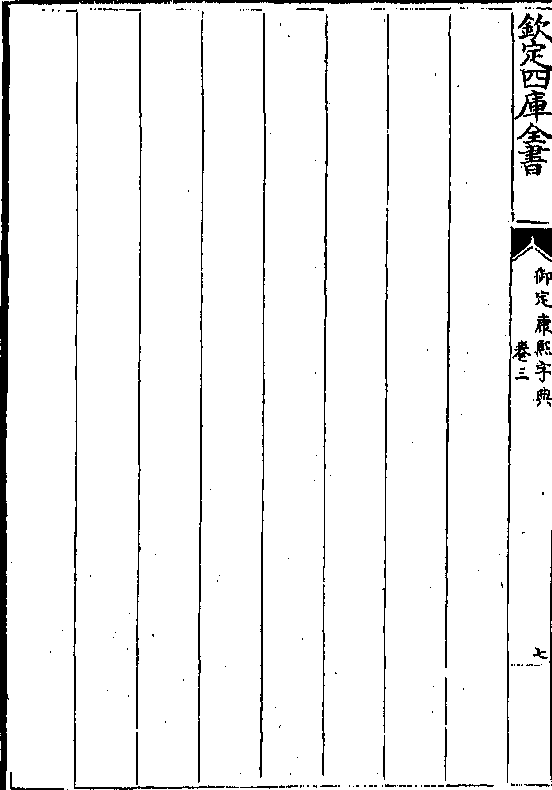 欽定四庫全書
御定康熙字典
卷三
七